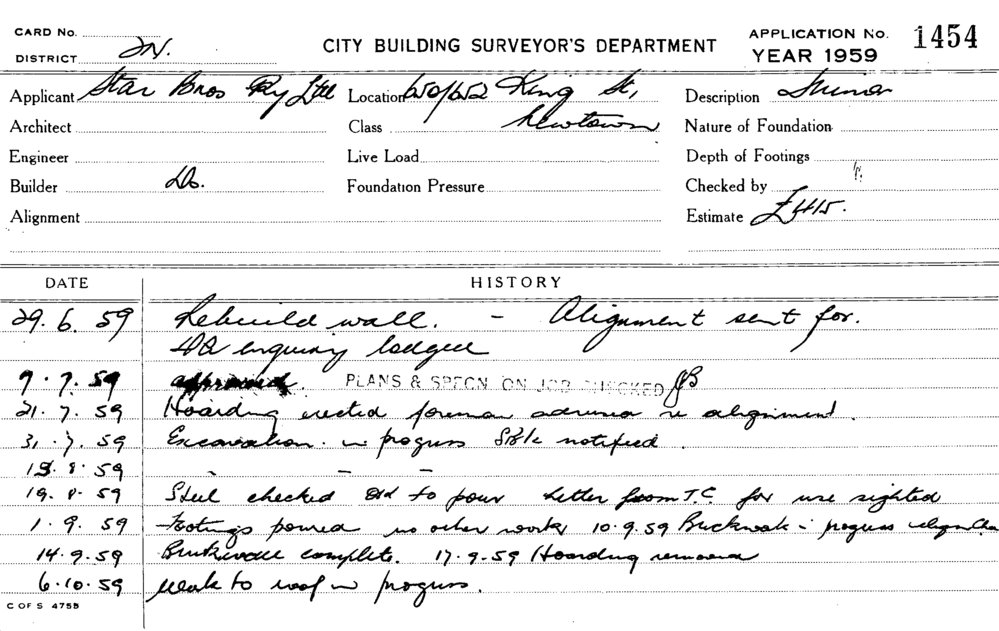 CARD No.
DISTRICT 2N.
CITY BUILDING SURVEYOR'S DEPARTMENT
APPLICATION No. 1454
YEAR 1959
Applicant Star Bros Pty Ltd Location 650/652 King St, Description Minor
Architect Class Newtown Nature of Foundation
Engineer Live Load Depth of Footings
Builder Do. Foundation Pressure Checked by
Alignment Estimate £415.
DATE HISTORY
29.6.59 Rebuild wall. - Alignment sent for.
enquiry lodged
9.7.59 approved. PLANS & SPECN ON JOB CHECKED JB
21.7.59 Hoarding erected foreman advised re alignment.
31.7.59 Excavation in progress notified.
13.8.59 - - -
19.8.59 Steel checked to pour Letter from T.C. for use sighted
1.9.59 Footings poured no other work 10.9.59 Brickwork in progress
14.9.59 Brickwork complete. 17.9.59 Hoarding removed
6.10.59 Work to roof in progress.
C OF S 475B